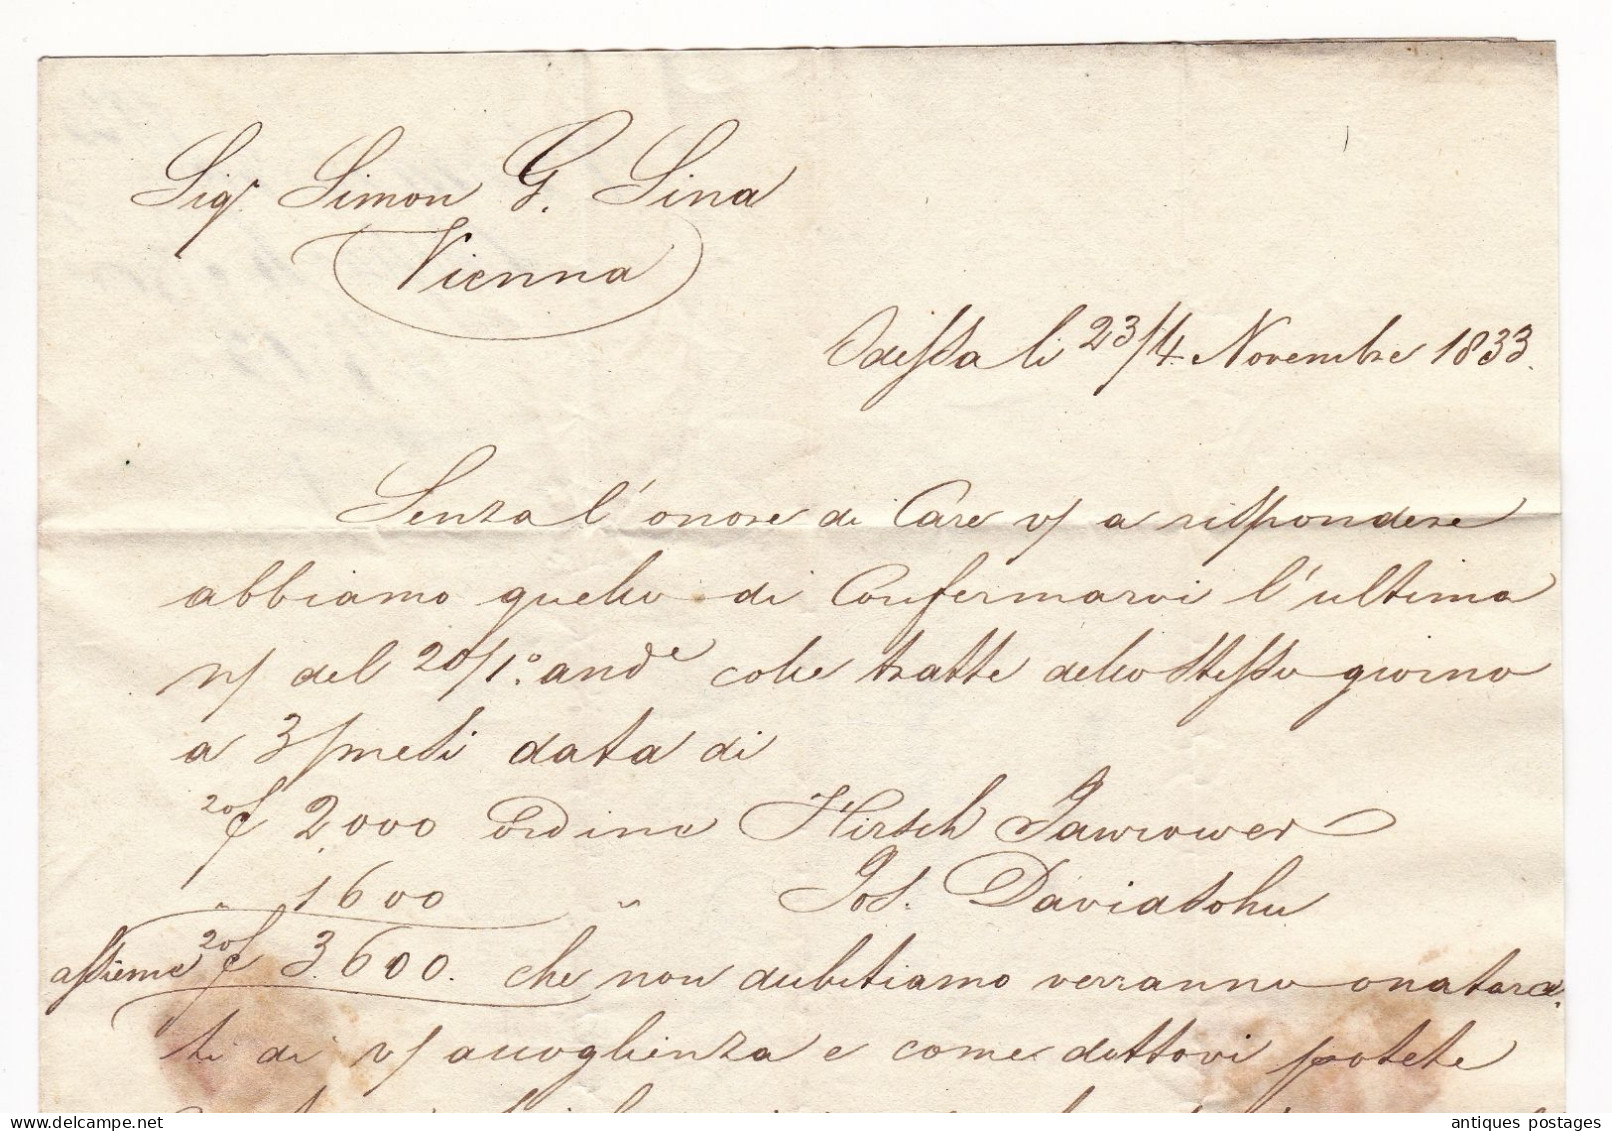 Sigr. Simon G. Sina
Vienna
Odessa li 23/4. Novembre 1833.
Senza l'onore di Care v/ a rispondere
abbiamo quello di Confermarvi l'ultima
n/ del 20/1.° ande colle tratte dello stesso giorno
a 3/mesi data di
20/f 2,000 ordine Hirsch Jawrower
" 1600 " Jos. Daviatohu
assieme 20/f 3.600. che non dubitiamo verranno onorata
ti di v/ accoglienza e come dettovi potete
antiques postages